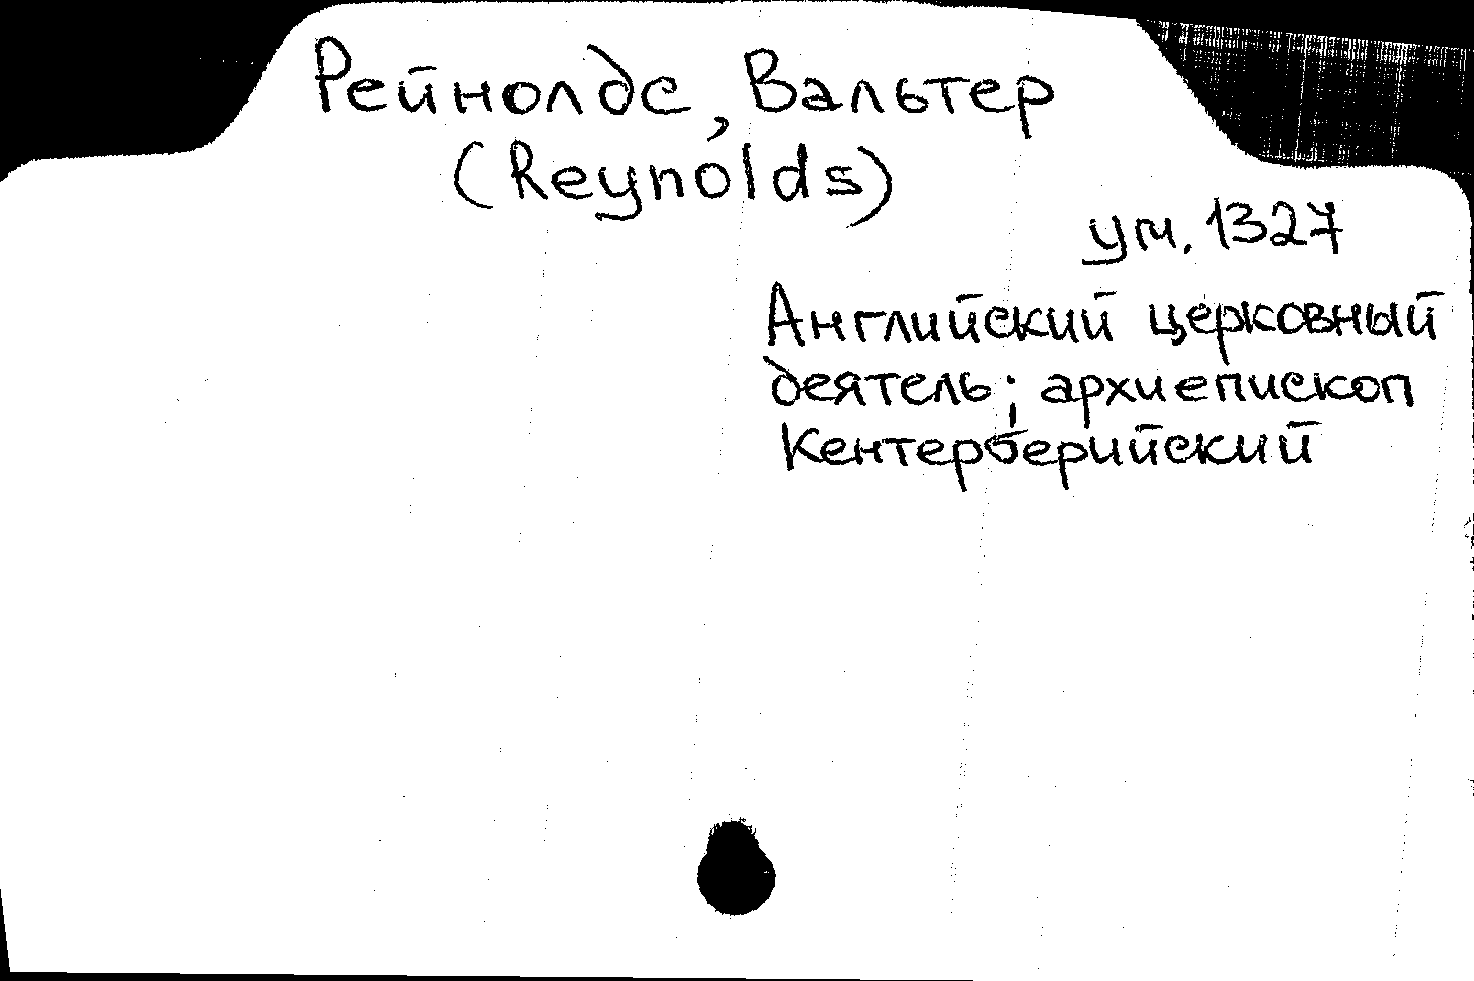 Рейнолдс, Вальтер
(Reynolds)
ум. 1327
Английский церковный
деятель; архиепископ
Кентерберийский